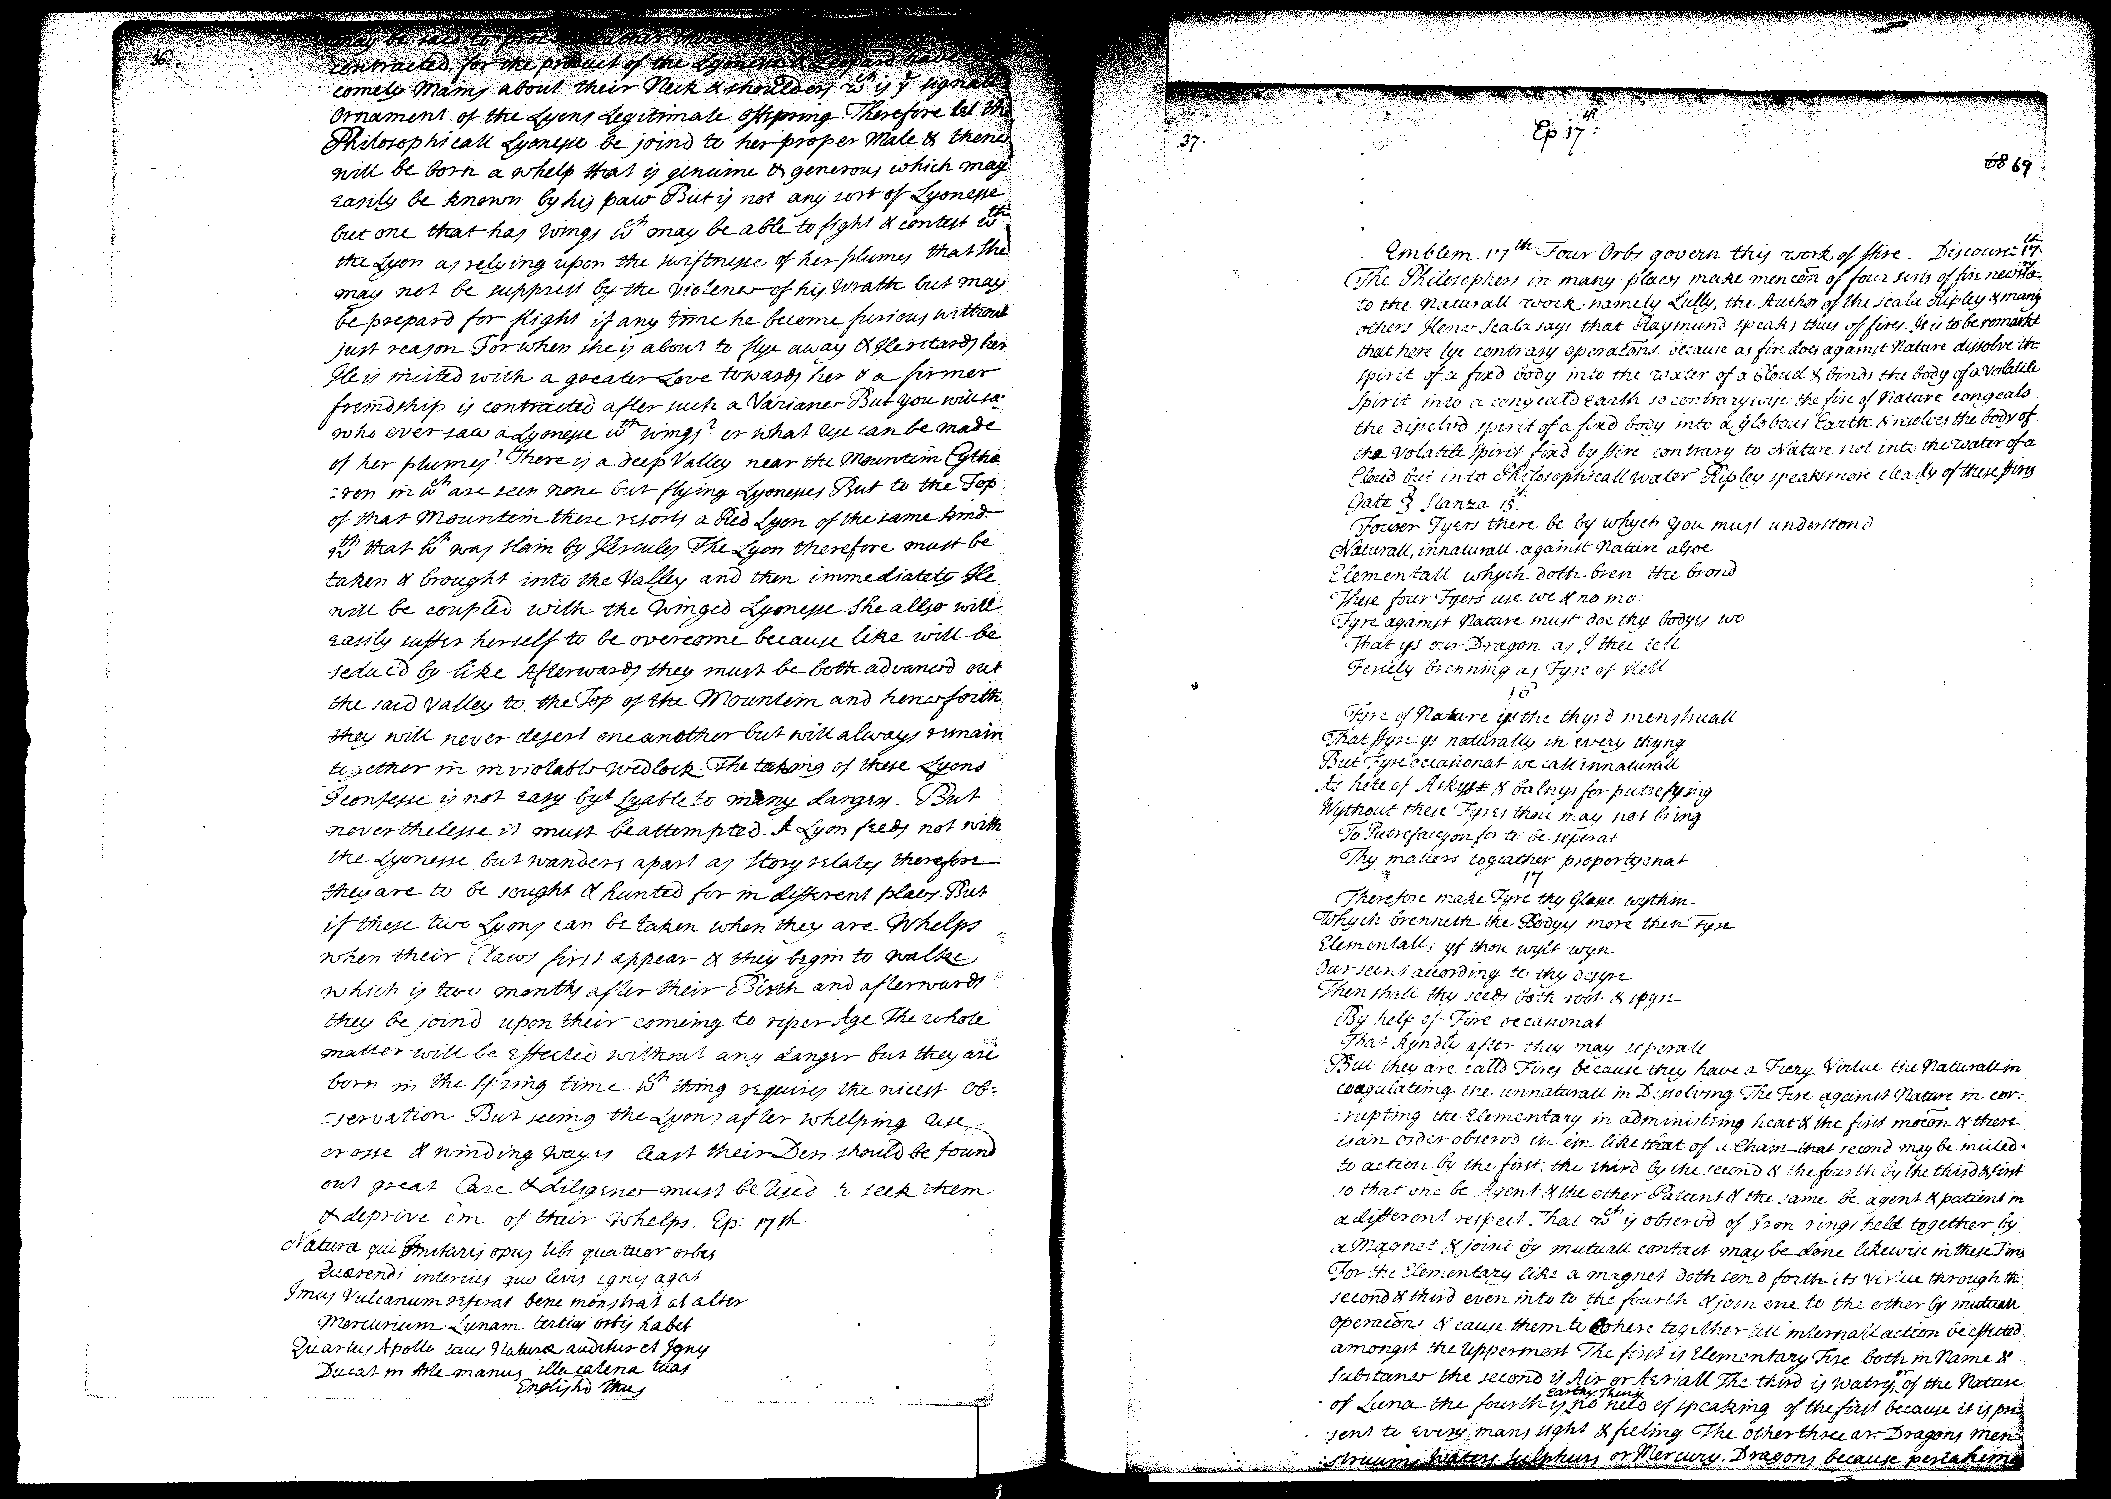 36.
contracted for the product of the Lyonesse & Leopard have
comely Mains about their Neck & shoulders wch is ye signall
Ornament of the Lyons Legitimate offspring Therefore let the
Philosophicall Lyonesse be joind to her proper Male & thence
will be born a whelp that is genuine & generous which may
easily be known by his paw But is not any sort of Lyonesse
but one that has wings wch may be able to fight & contest wth
the Lyon as relying upon the swiftnesse of her plumes that she
may not be supprest by the violence of his wrath but may
be prepard for flight if any time he become furious without
just reason For when she is about to flye away & He retards her
He is incited with a greater Love towards her & a firmer
freindship is contracted after such a Variance But you will say
who ever saw a Lyonesse wth wings? or what use can be made
of her plumes? There is a deep Valley near the Mountein Cythæ
:ron in wch are seen none but flying Lyonesses But to the Top
of that Mountein there resorts a Red Lyon of the same kind
wth that wch was slain by Hercules The Lyon therefore must be
taken & brought into the Valley and then immediately He
will be coupled with the winged Lyonesse She allso will
easily suffer herself to be overcome because like will be
seduc'd by like Afterwards they must be both advanced out
the said valley to the Top of the Mountein and henceforth
they will never desert one another but will always remain
together in inviolable wedlock. The taking of these Lyons
I confesse is not easy byt lyable to many dangers. But
neverthelesse it must be attempted. A Lyon feeds not with
the Lyonesse but wanders apart as Story relates therefore
they are to be sought & hunted for in different places But
if these two Lyons can be taken when they are Whelps
when their Claws first appear & they begin to walke
which is two months after their Birth and afterwards
they be joind upon their comeing to riper Age The whole
matter will be effected without any danger but they are
born in the spring time wch thing requires the nicest Ob=
:servation But seeing the Lyons after whelping use
crosse & winding wayes least their Den should be found
out great Care & diligence must be used to seek them
& deprive 'em of their whelps. Ep: 17th
Natura qui imitaris opus tibi quatuor orbes
Quærendi interius quos levis ignis agat
Imus Vulcanum referat bene monstrat at alter
Mercurium Lunam tertius orbis habet
Quartus Apollo tuus Naturæ auditur et Ignis
Ducat in Arte manus illa catena tuas
English'd thus
37.
Ep 17th:
68 69
Emblem 17th Four Orbs govern this work of fire. Discourse 17th
The Philosophers in many places make mencōn of four sorts of fire necessary
to the Naturall work namely Lully, the Author of the Scala Ripley & many
others Hence Scala says that Raymund speaks thus of fires. It is to be remarkt
that here lye contrary operacōns because as fire does against Nature dissolve the
spirit of a fixd body into the water of a Cloud & binds the body of a volatile
Spirit into a congeald earth so contrarywise the fire of Nature congeals
the dissolvd spirit of a fixd body into a Globous Earth & resolves the body of
the volatile spirit fixd by fire contrary to Nature not into the water of a
Cloud but into Philosophicall water Ripley speaks more clearly of these fires
Gate 3 Stanza 15
Fower Fyers there be by whych you must understond
Naturall, innaturall. against Nature alsoe
Elementall whych doth bren the brond
These four Fyers use we & no mo:
Fyre against Nature must doe thy bodyes wo
That ys our Dragon as I thee tell
Fersely brenning as Fyre of Hell
16
Fyre of Nature ys the thyrd menstruall
That fyre ys naturally in every thyng
But Fyre occasionat we call innaturall
As hete of Askys & balnys for putrefying
Wythout these Fyres thou may not bring
To Putrefaccyon for to be seperat
Thy matters togeather proportyonat
17
Therefore make Fyre thy Glasse wythin
Whych brenneth the Bodyes more then Fyre
Elementall; yf thou wylt wyn
Our secret according to thy desyre
Then shall thy seeds both root & spyre
By help of Fire occasionat
That kyndly after they may seperate
But they are calld Fires because they have a Fiery Virtue the Naturall in
coagulating the unnaturall in Dissolving The Fire against Nature in cor=
:rupting the Elementary in administring heat & the first mocōn & there
is an order observd in 'em like that of a Chain that second may be incited
to action by the first, the third by the second & the fourth by the third & first
so that one be Agent & the other Patient & the same be agent & patient in
a different respect. That wch is observd of Iron rings held together by
a Magnet & joind by mutuall contact may be done likewise in these Fires
For the Elementary like a magnet doth send forth its virtue through the
second & third even into to the fourth & join one to the other by mutuall
operacōns & cause them to cohere together till internall action be effected
amongst the uppermost The first is Elementary Fire both in Name &
substance the second is Air or Aeriall The third is watry or of the Nature
of Luna the fourth is Earthy There is no need of speaking of the first because it is pre
sent to every mans sight & feeling The other three are Dragons men
struums waters sulphurs or Mercury. Dragons because partakeing